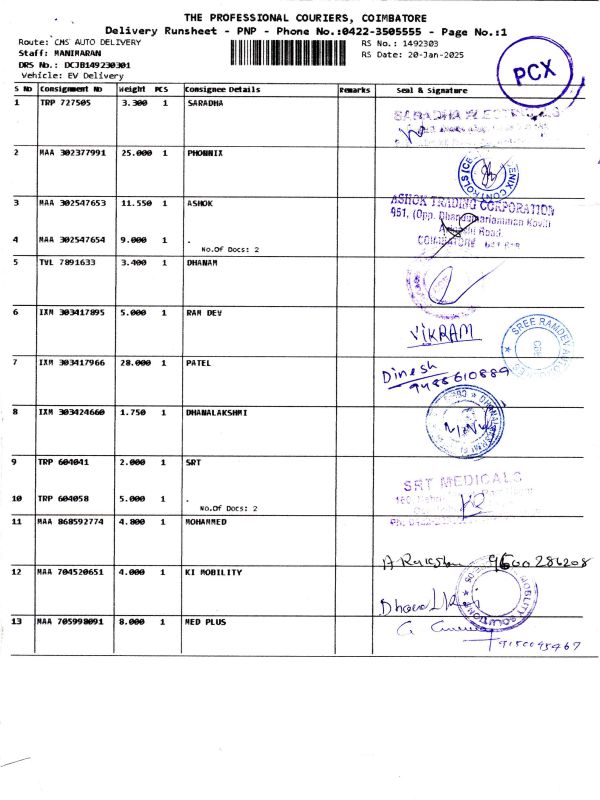 THE PROFESSIONAL COURIERS, COIMBATORE
Delivery Runsheet - PNP - Phone No.:0422-3505555 - Page No.:1
Route: CMS AUTO DELIVERY
RS No.: 1492303
Staff: MANIMARAN
RS Date: 20-Jan-2025
DRS No.: DCJB149230301
Vehicle: EV Delivery
PCX
S No Consignment No Weight PCS Consignee Details Remarks Seal & Signature
1 TRP 727505 3.300 1 SARADHA
2 MAA 302377991 25.000 1 PHONNIX
3 MAA 302547653 11.550 1 ASHOK
ASHOK TRADING CORPORATION
951, (Opp. Dhandumariamman Kovil)
Road,
COIMBATORE
4 MAA 302547654 9.000 1 .
No.Of Docs: 2
5 TVL 7891633 3.400 1 DHANAM
6 IXM 303417895 5.000 1 RAM DEV
VIKRAM
SREE RAMDEV AUTO
7 IXM 303417966 28.000 1 PATEL
Dinesh
9488610889
8 IXM 303424660 1.750 1 DHANALAKSHMI
9 TRP 604041 2.000 1 SRT
SRT MEDICALS
10 TRP 604058 5.000 1 .
No.Of Docs: 2
11 MAA 868592774 4.800 1 MOHAMMED
9600286208
12 MAA 704520651 4.000 1 KI MOBILITY
MOBILITY SOLUTION
13 MAA 705998091 8.000 1 MED PLUS
9150095467